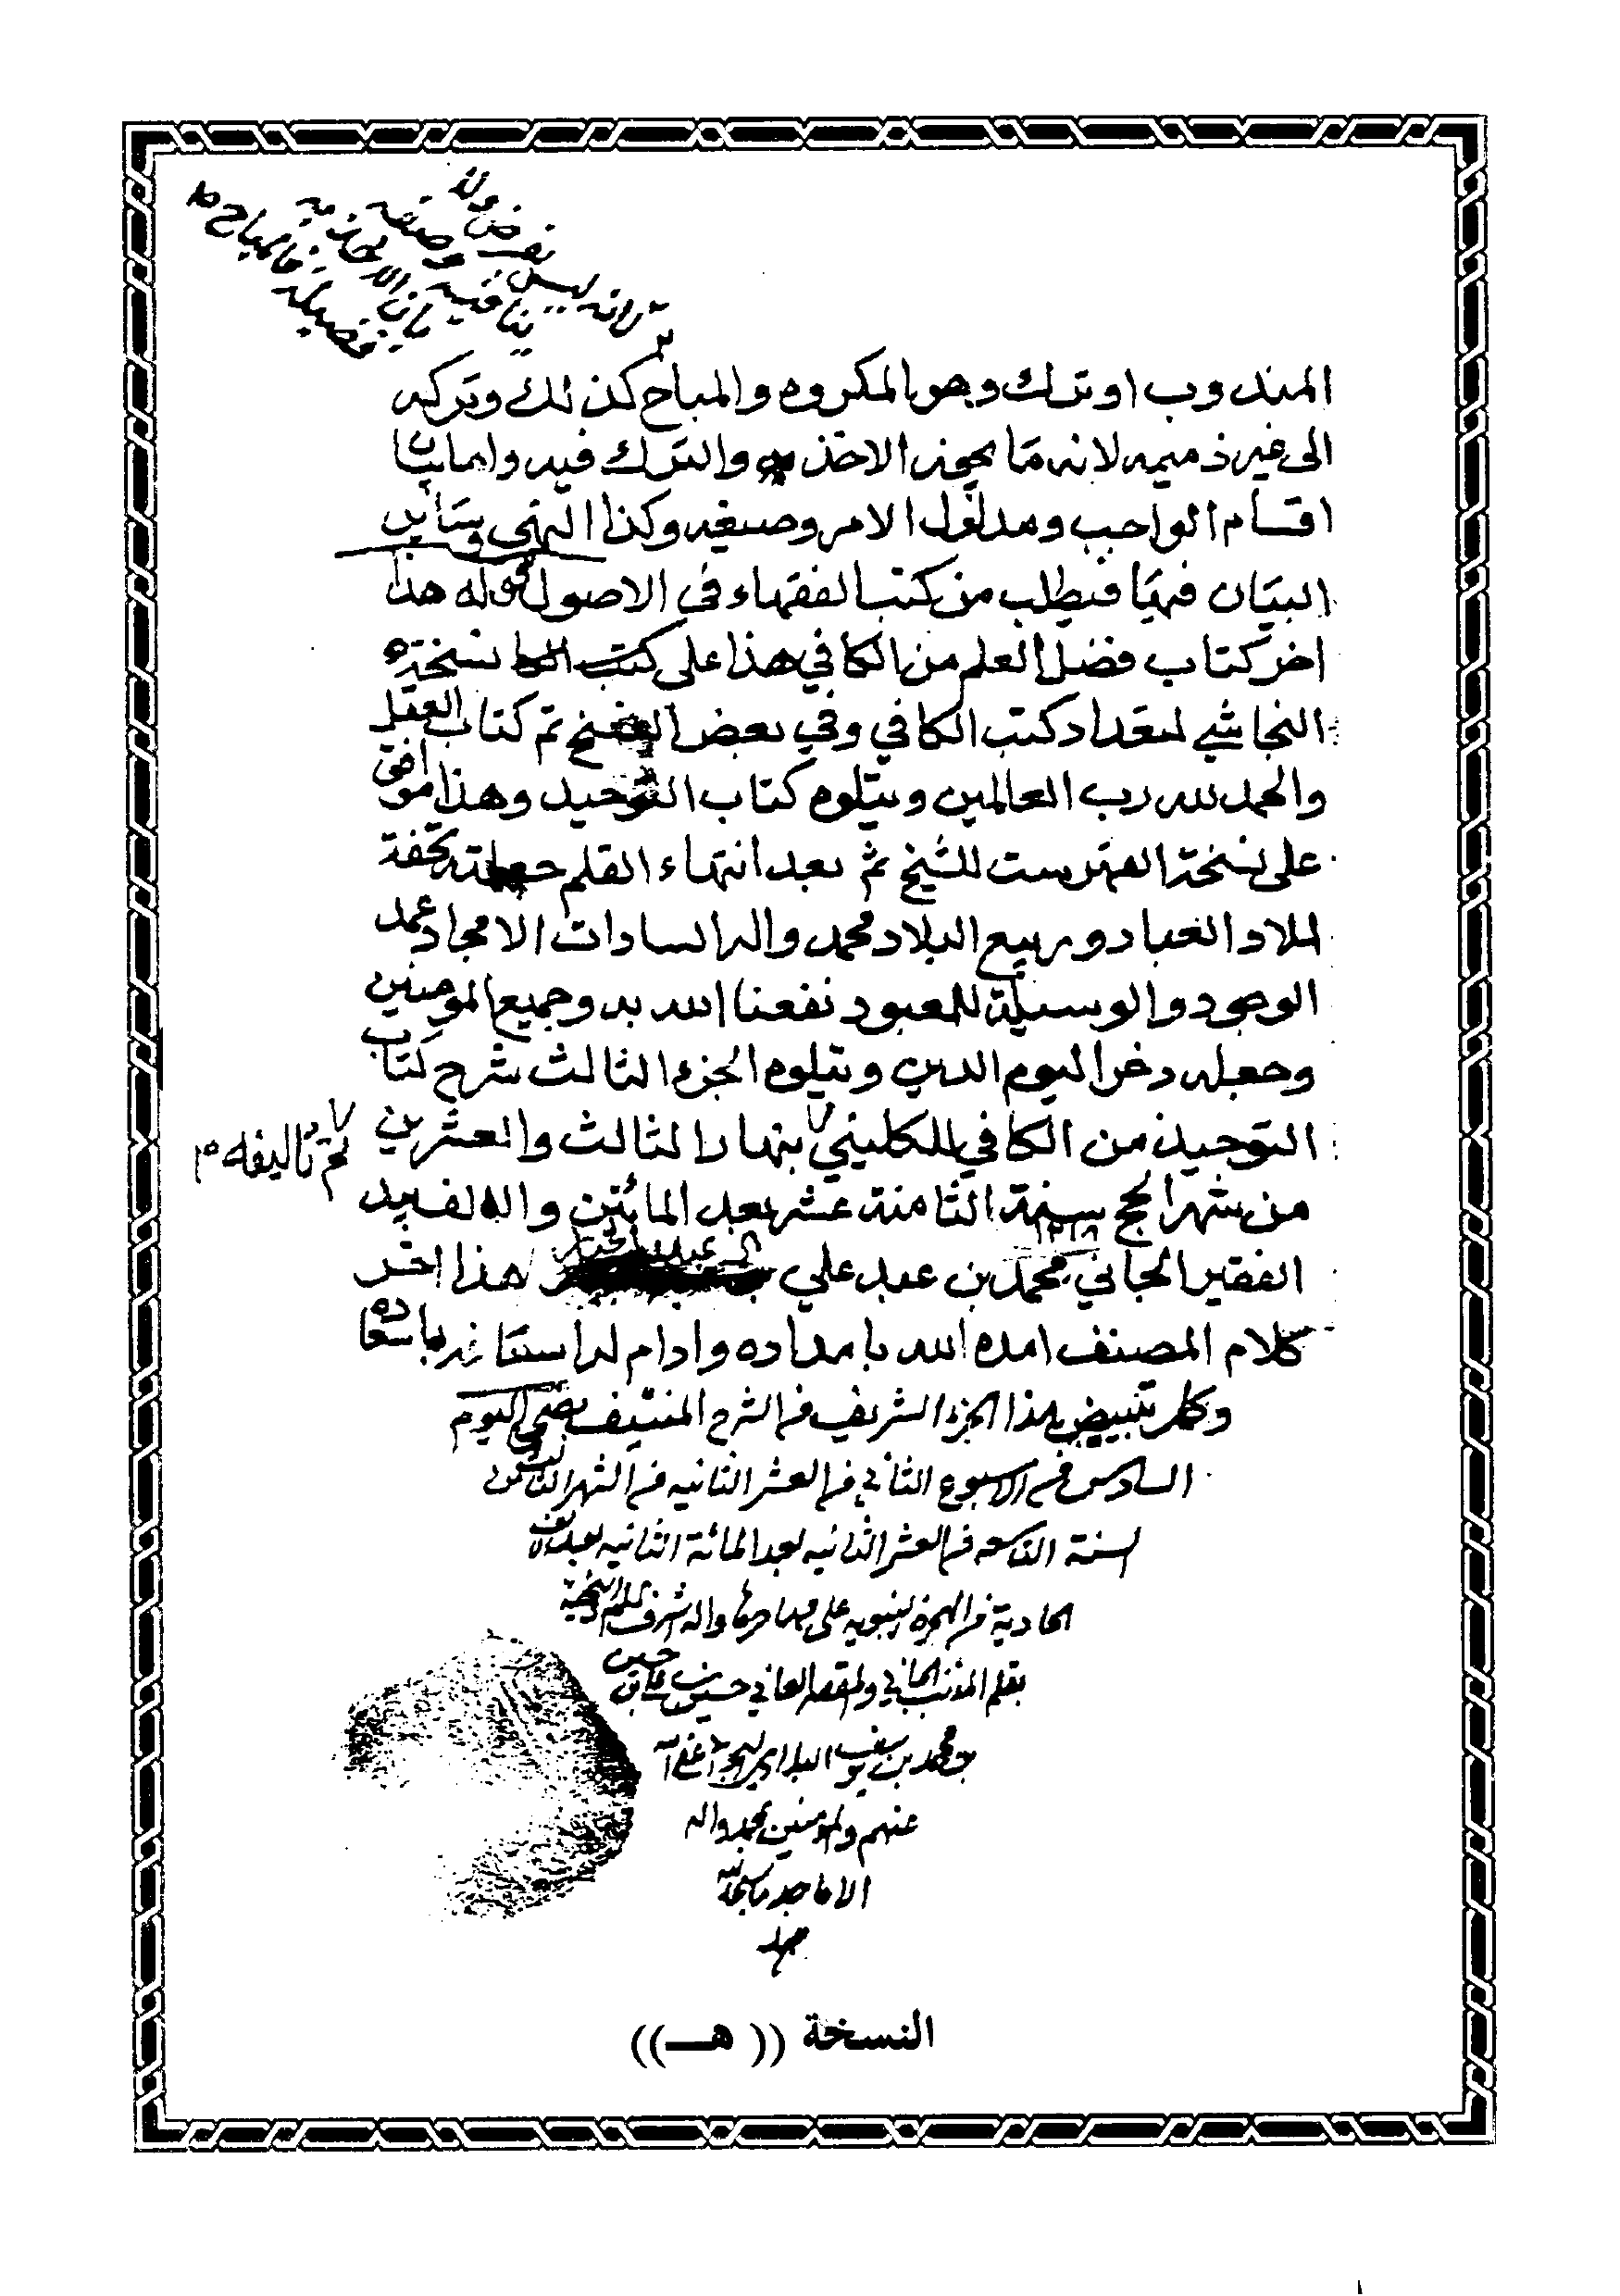 لانه ليس
المندوب او ترك وهو المكروه والمباح كذلك وتركه
الى غير ذميمه لانه ما يجوز الاخذ والترك فيه واما بيان
اقسام الواجب ومدلول الامر وصيغه وكذا النهي وسائر
البيان فيها فيطلب من كتب الفقهاء في الاصول قوله هذا
اخر كتاب فضل العلم من الكافي هذا على نسخة
النجاشي لتعداد كتب الكافي وفي بعض النسخ تم كتاب العقل
والحمد لله رب العالمين ويتلوه كتاب التوحيد وهذا موافق
على نسخة الفهرست للشيخ ثم بعد انتهاء القلم جعلته تحفة
لملاد العباد وربيع البلاد محمد واله السادات الامجاد عمد
الوجود والوسيلة للمعبود نفعنا الله به وجميع المومنين
وجعله دخرا ليوم الدين ويتلوه الجزء الثالث شرح كتاب
التوحيد من الكافي للكليني بنهار الثالث والعشرين
تم تاليفه
من شهر الحج سنة الثامنة عشر بعد المائتين والالف بيد
١٢١٨
الفقير الجاني محمد بن عبد علي ال عبد الجبار هذا اخر
كلام المصنف امده الله بامداده وادام له استنانه باسعاده
وكمل تبييض هذا الجزء الشريف من الشرح المنيف بضحى اليوم
السادس من الاسبوع الثاني من العشر الثانيه من الشهر الثامن
السنة التاسعه من العشر الثانيه بعد المائة الثانيه بعد الالف
الحادية من الهجرة النبويه على مهاجرها واله اشرف السلام والتحية
بقلم المذنب الجاني والمقصر العاني حسين بن علي بن حسين
بن محمد بن يوسف البلادي البحراني
عنهم والمؤمنين بمحمد واله
الاماجد
النسخة (( هـ ))